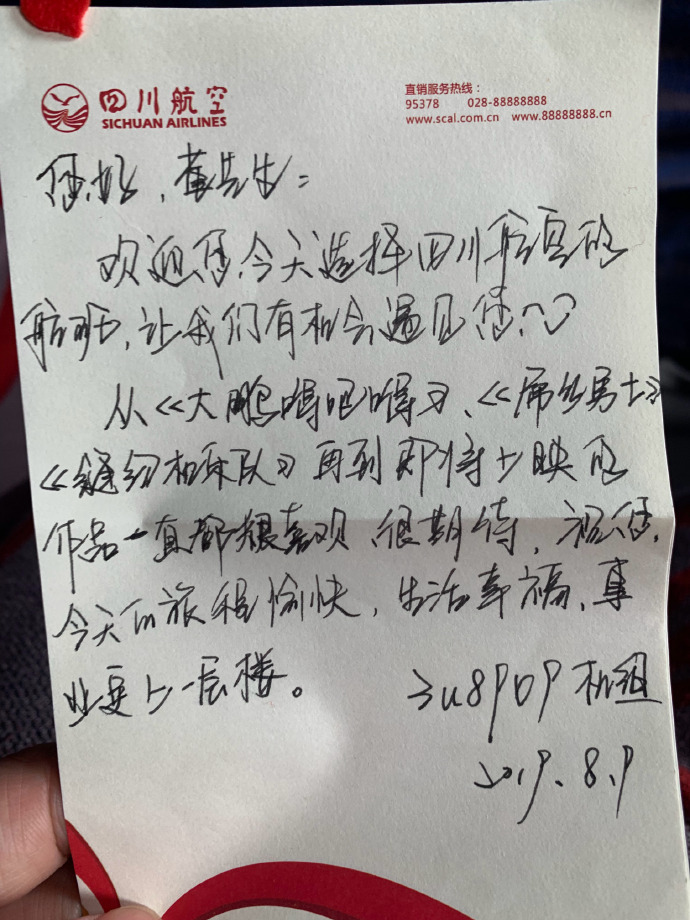 四川航空
SICHUAN AIRLINES
直销服务热线：
95378 028-88888888
www.scal.com.cn www.88888888.cn
您好，董先生：
欢迎您今天选择四川航空的
航班，让我们有机会遇见您
从《大鹏嘚吧嘚》、《屌丝男士》
《缝纫机乐队》再到即将上映的
作品一直都很喜欢、很期待，祝您
今天的旅程愉快，生活幸福、事
业更上一层楼。
3U8909 机组
2019.8.9